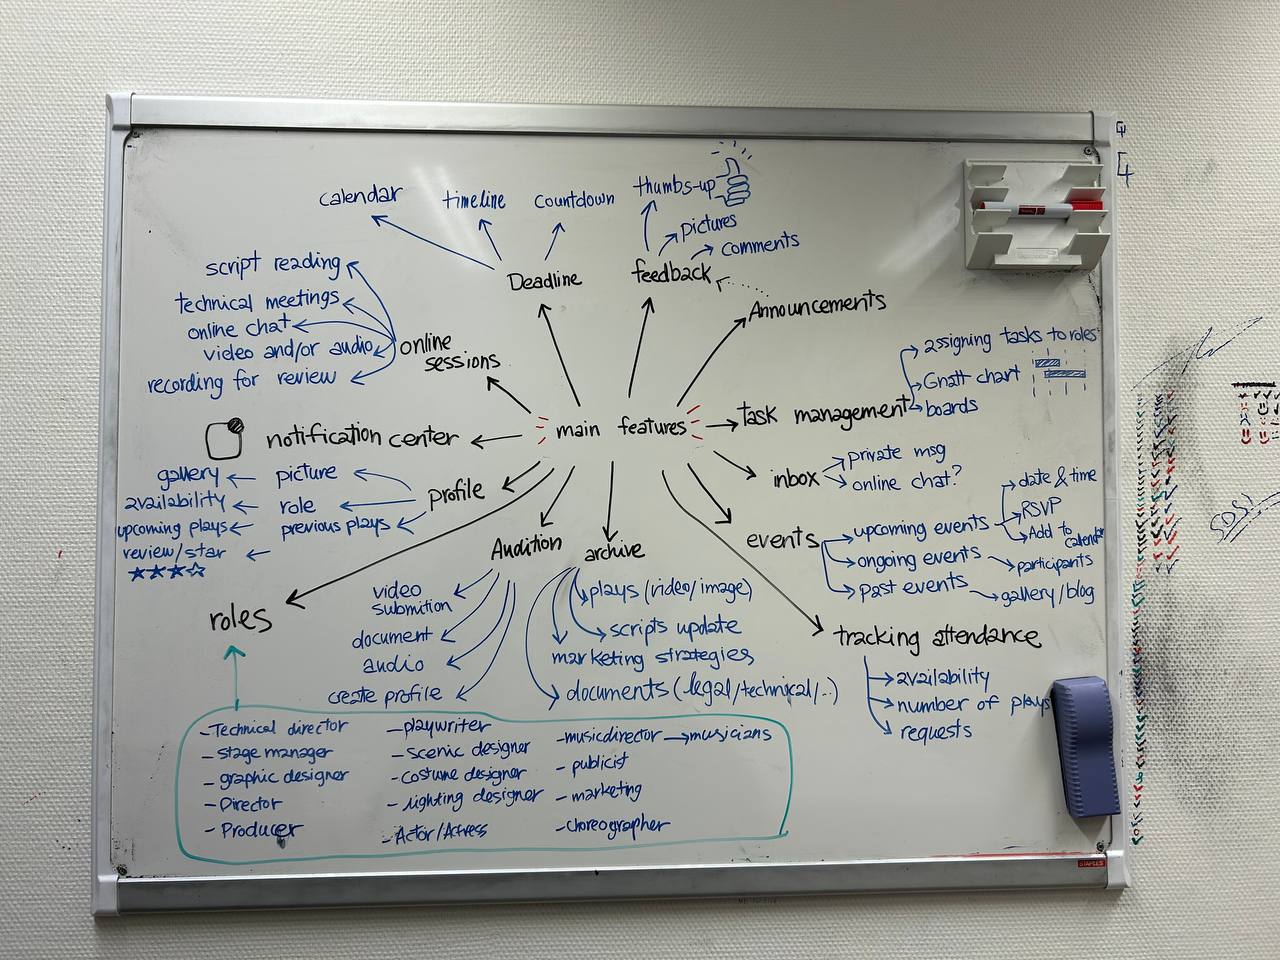 calendar
timeline
countdown
thumbs-up
pictures
comments
Deadline
feedback
Announcements
script reading
technical meetings
online chat
video and/or audio
recording for review
online
sessions
assigning tasks to roles
Gnatt chart
boards
task management
main features
notification center
inbox
private msg
online chat?
profile
picture
gallery
role
availability
previous plays
upcoming plays
review/star
events
upcoming events
date & time
RSVP
Add to
ongoing events
participants
past events
gallery/blog
Audition
video
submition
document
audio
create profile
archive
plays (video/image)
scripts update
marketing strategies
documents (legal/technical/..)
tracking attendance
availability
number of plays
requests
roles
- Technical director
- stage manager
- graphic designer
- Director
- Producer
- playwriter
- scenic designer
- costume designer
- lighting designer
- Actor/Actress
- musicdirector → musicians
- publicist
- marketing
- choreographer
STAPLES